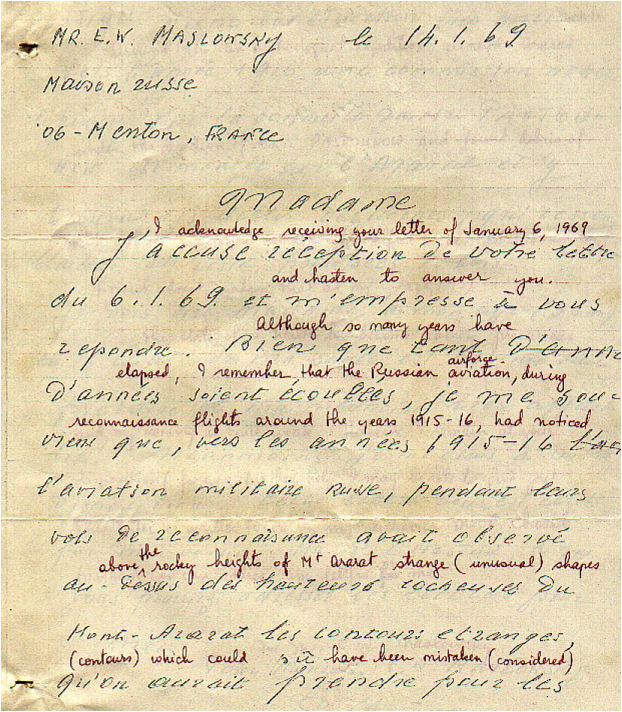 MR. E.W. MASLOWSKY le 14.1.69
Maison russe
06 - Menton, FRANCE
Madame
I acknowledge receiving your letter of January 6, 1969
J'accuse réception de votre lettre
and hasten to answer you.
du 6.1.69 et m'empresse à vous
although so many years have
repondre. Bien que tant D'anné
airforce
elapsed, I remember, that the Russian aviation, during
D'années soient écoulées, je me sou-
reconnaissance flights around the years 1915-16, had noticed
viens que, vers les années 1915-16
l'aviation militaire Russe, pendant leurs
vols de reconnaisance avait observé
the
above rocky heights of Mt Ararat strange (unusual) shapes
au-dessus des hauteurs rocheuses du
Mont-Ararat les contours etranges,
(contours) which could have been mistaken (considered)
qu'on aurait prendre pour les